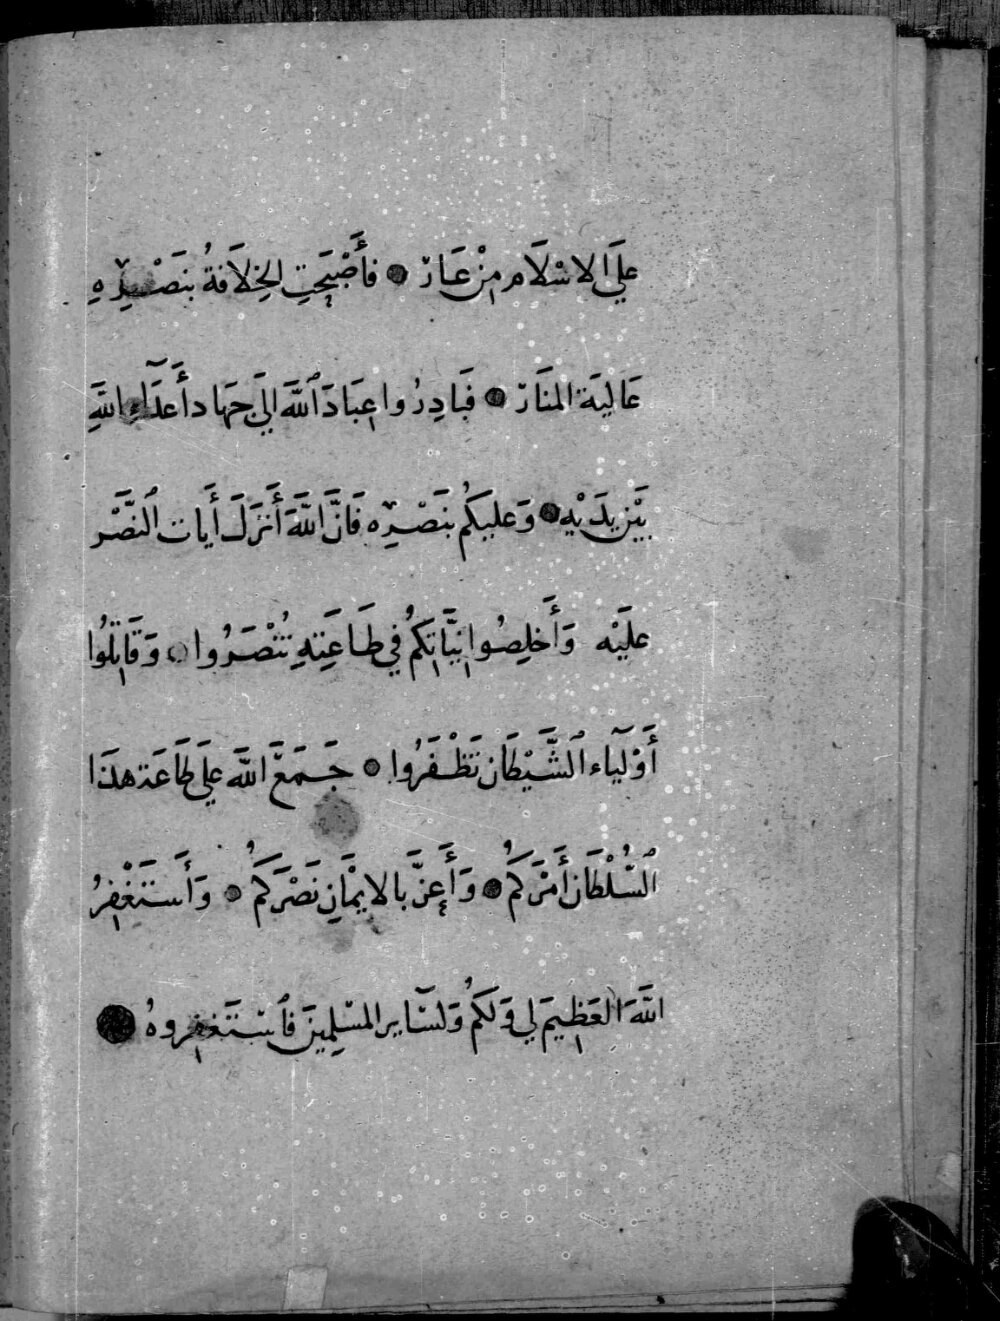 عَلَى الاسْلَام مِنْ عَارْ ● فأَصْبَحَتِ الخِلَافَةُ بنَصْرِهِ
عَاليَة المنَارْ ● فَبَادِرُوا عِبَادَ ٱللَّهَ الَى جهَاد أَعدَآءِ اللَّهِ
بَيْن يدَيْه ● وَعليكُم بنَصْرِه فَانَّ اللَّهَ أَنزَلَ أَيات ٱلنَّصْر
عليَه وَأَخلِصُوا نيَّاتِكُم في طَاعَتِهِ تُنْصَرُوا ● وَقَاتِلُوا
أَوْليَآء ٱلشَّيْطَان تَظْفَرُوا ● جَمَعَ اللَّه عَلى طَاعَة هذَا
ٱلسُّلْطَان أَمْرَكُم ● وَأَعِزَّ بالايمْانِ نَصْرَكُم ● وَأَستَغْفِرُ
اللَّهَ العَظِيمَ لي وَلَكُم وَلسَآير المسْلِمِينَ فَٱسْتَغفِروهُ ●